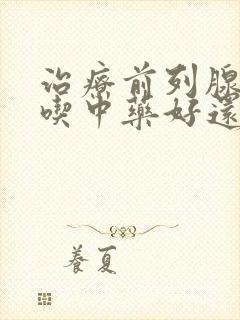 治療前列腺
喫中藥好還
養夏